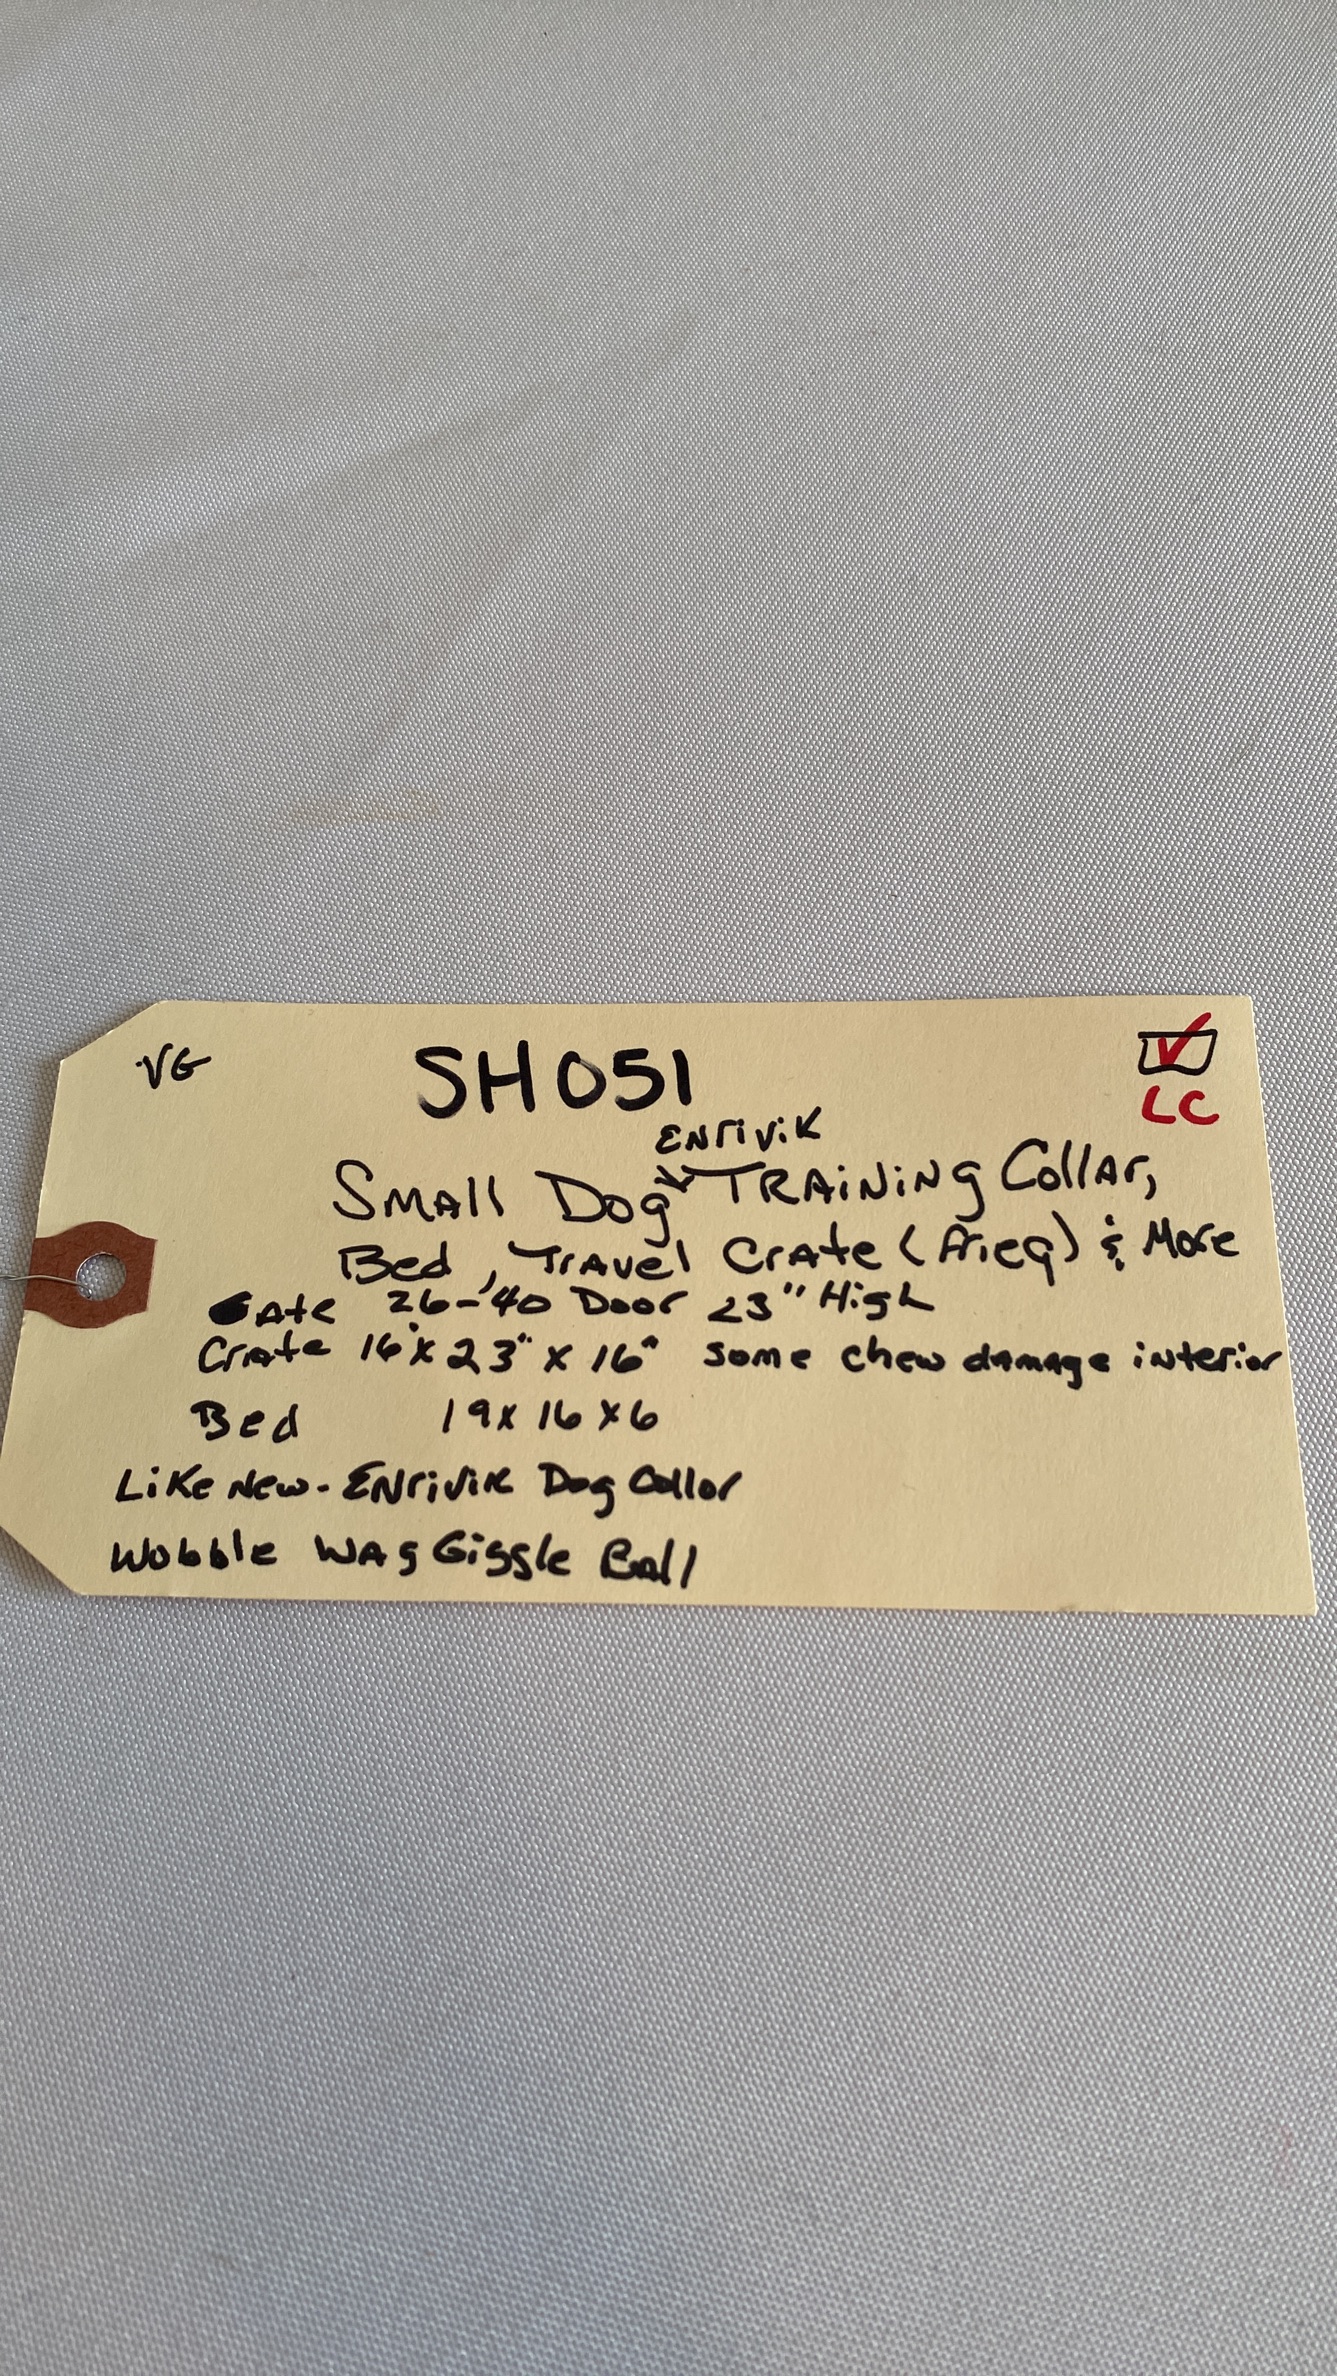 VG
SH051
LC
ENriViK
SMAll Dog TRAiNiNg CollAr,
Bed, TrAvel CrAte (Arieq) & More
GAte 26-40 Door 23" High
Crate 16" x 23" x 16" some chew damage interior
Bed 19 x 16 x 6
Like New - ENriVik Dog Collor
Wobble WAg Giggle Ball